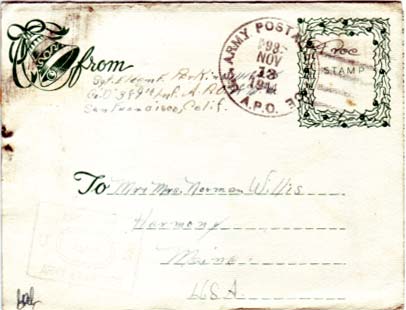 from
Co. D 389th Inf. A.P.O.
San Francisco, Calif.
U.S. ARMY POSTAL
NOV
13
1944
A.P.O.
Free
STAMP
To Mr & Mrs. Norman Willis
Harmony
Maine
USA